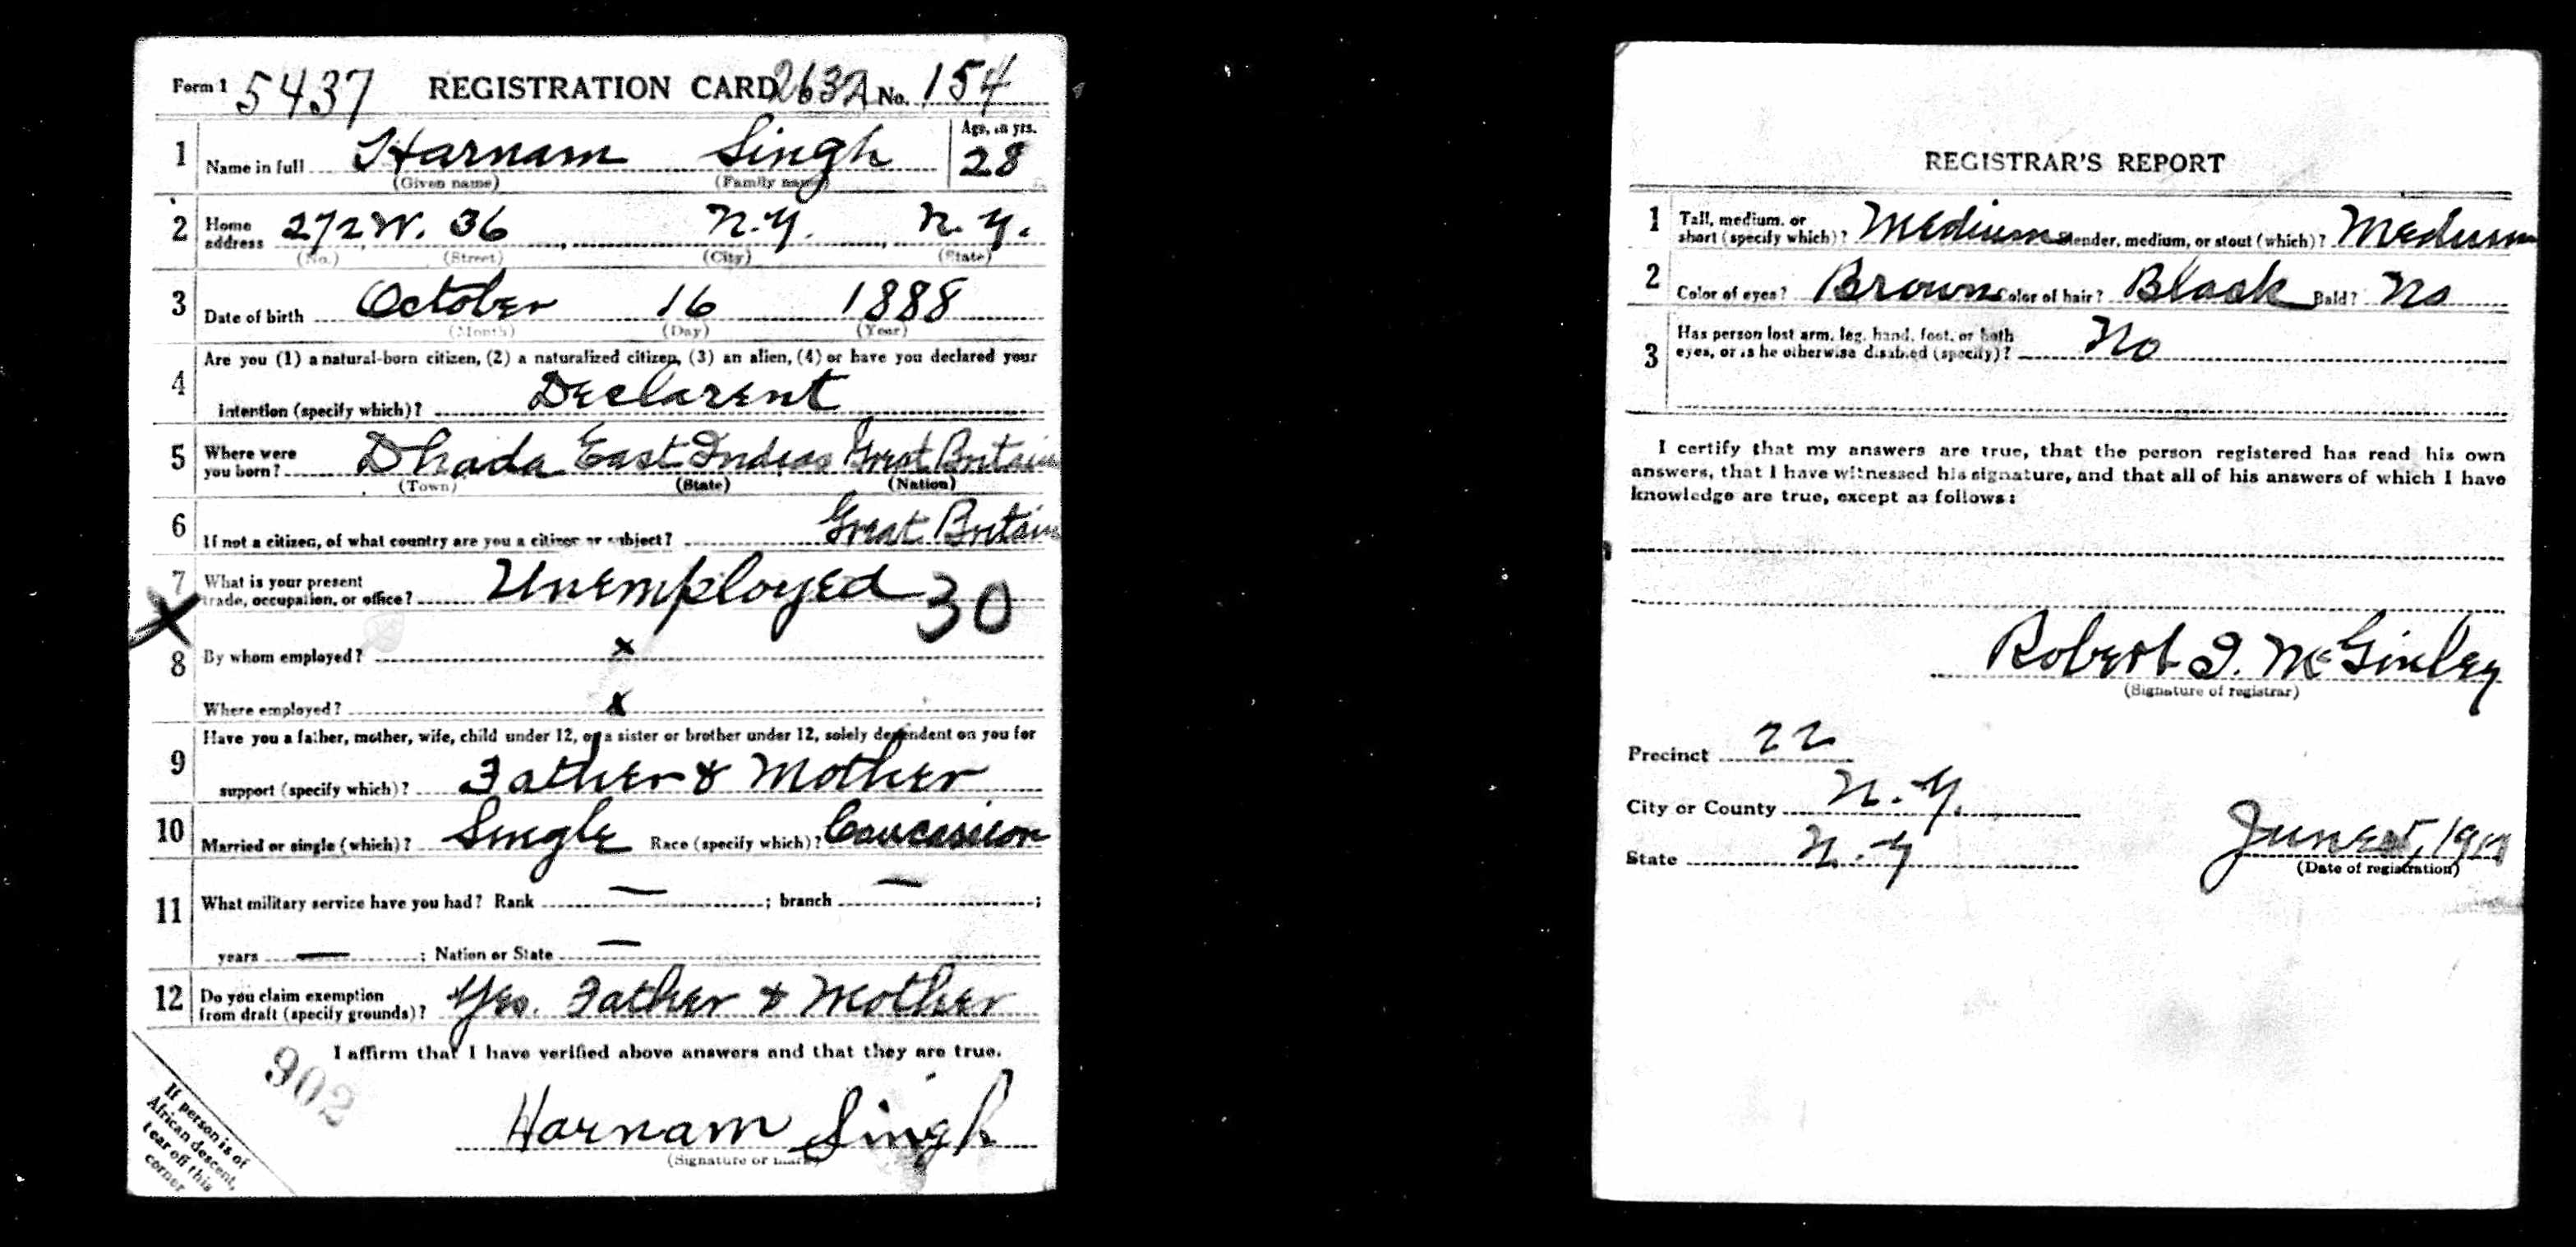 Form 1 5437 REGISTRATION CARD 2632 No. 154
1 Name in full Harnam Singh Age, in yrs. 28
(Given name) (Family name)
2 Home address 272 W. 36 N.Y. N.Y.
(No.) (Street) (City) (State)
3 Date of birth October 16 1888
(Month) (Day) (Year)
4 Are you (1) a natural-born citizen, (2) a naturalized citizen, (3) an alien, (4) or have you declared your
intention (specify which)? Declarent
5 Where were you born? Dhada East Indias Great Britain
(Town) (State) (Nation)
6 If not a citizen, of what country are you a citizen or subject? Great Britain
7 What is your present trade, occupation, or office? Unemployed 30
X
8 By whom employed? x
Where employed? x
9 Have you a father, mother, wife, child under 12, or a sister or brother under 12, solely dependent on you for
support (specify which)? Father & Mother
10 Married or single (which)? Single Race (specify which)? Caucassion
11 What military service have you had? Rank — ; branch — ;
years — ; Nation or State —
12 Do you claim exemption from draft (specify grounds)? Yes. Father & Mother
I affirm that I have verified above answers and that they are true.
902
Harnam Singh
(Signature or mark)
If person is of
African descent,
tear off this
corner
REGISTRAR'S REPORT
1 Tall, medium, or short (specify which)? Medium Slender, medium, or stout (which)? Medium
2 Color of eyes? Brown Color of hair? Black Bald? No
3 Has person lost arm, leg, hand, foot, or both
eyes, or is he otherwise disabled (specify)? No
I certify that my answers are true, that the person registered has read his own
answers, that I have witnessed his signature, and that all of his answers of which I have
knowledge are true, except as follows:
Robert I. McGinley
(Signature of registrar)
Precinct 22
City or County N.Y.
State N.Y June 5, 1917
(Date of registration)